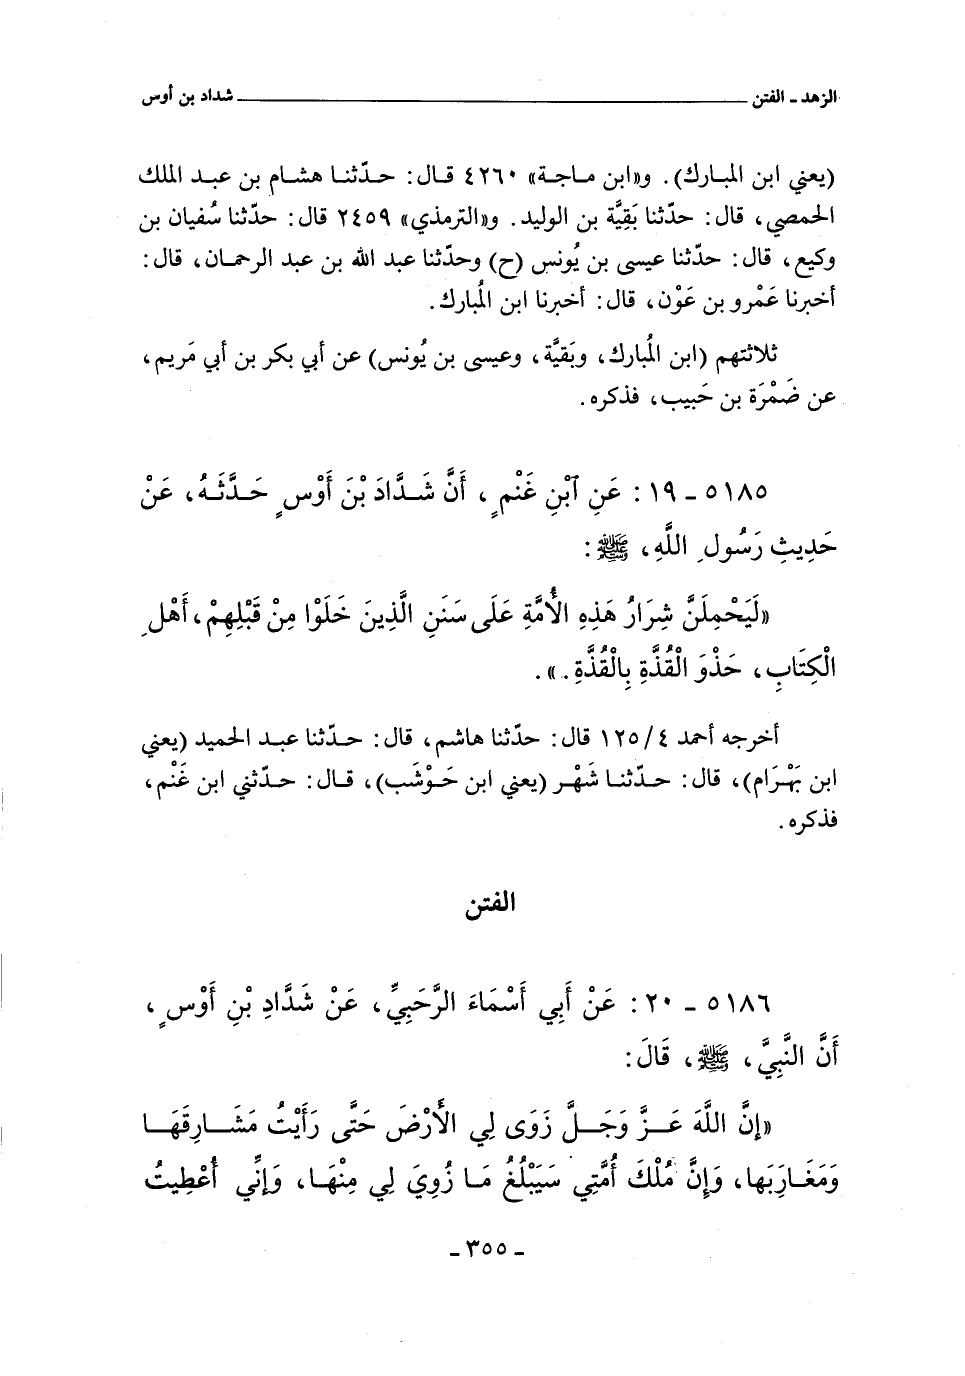 الزهد ـ الفتن ــــــــــــــــــــ شداد بن أوس
(يعني ابن المبارك). و«ابن ماجة» ٤٢٦٠ قال: حدّثنا هشام بن عبد الملك
الحمصي، قال: حدّثنا بَقِيَّة بن الوليد. و«الترمذي» ٢٤٥٩ قال: حدّثنا سُفيان بن
وكيع، قال: حدّثنا عيسى بن يُونس (ح) وحدّثنا عبد الله بن عبد الرحمان، قال:
أخبرنا عَمْرو بن عَوْن، قال: أخبرنا ابن المُبارك.
ثلاثتهم (ابن المُبارك، وبَقيَّة، وعيسى بن يُونس) عن أبي بكر بن أبي مَريم،
عن ضَمْرَة بن حَبيب، فذكره.
٥١٨٥ ـ ١٩: عَنِ ٱبْنِ غَنْمٍ، أَنَّ شَدَّادَ بْنَ أَوْسٍ حَدَّثَهُ، عَنْ
حَدِيثِ رَسُولِ اللَّهِ، ﷺ:
«لَيَحْمِلَنَّ شِرَارُ هَذِهِ الأُمَّةِ عَلَى سَنَنِ الَّذِينَ خَلَوْا مِنْ قَبْلِهِمْ، أَهْلِ
الْكِتَابِ، حَذْوَ الْقُذَّةِ بِالْقُذَّةِ.».
أخرجه أحمد ٤/١٢٥ قال: حدّثنا هاشم، قال: حدّثنا عبد الحميد (يعني
ابن بَهْرَام)، قال: حدّثنا شَهْر (يعني ابن حَوْشَب)، قال: حدّثني ابن غَنْم،
فذكره.
الفتن
٥١٨٦ ـ ٢٠: عَنْ أَبِي أَسْمَاءَ الرَّحَبِيِّ، عَنْ شَدَّادِ بْنِ أَوْسٍ،
أَنَّ النَّبِيَّ، ﷺ، قَالَ:
«إِنَّ اللَّهَ عَزَّ وَجَلَّ زَوَى لِي الأَرْضَ حَتَّى رَأَيْتُ مَشَارِقَهَا
وَمَغَارِبَها، وَإِنَّ مُلْكَ أُمَّتِي سَيَبْلُغُ مَا زُوِيَ لِي مِنْهَا، وَإِنِّي أُعْطِيتُ
ـ ٣٥٥ ـ